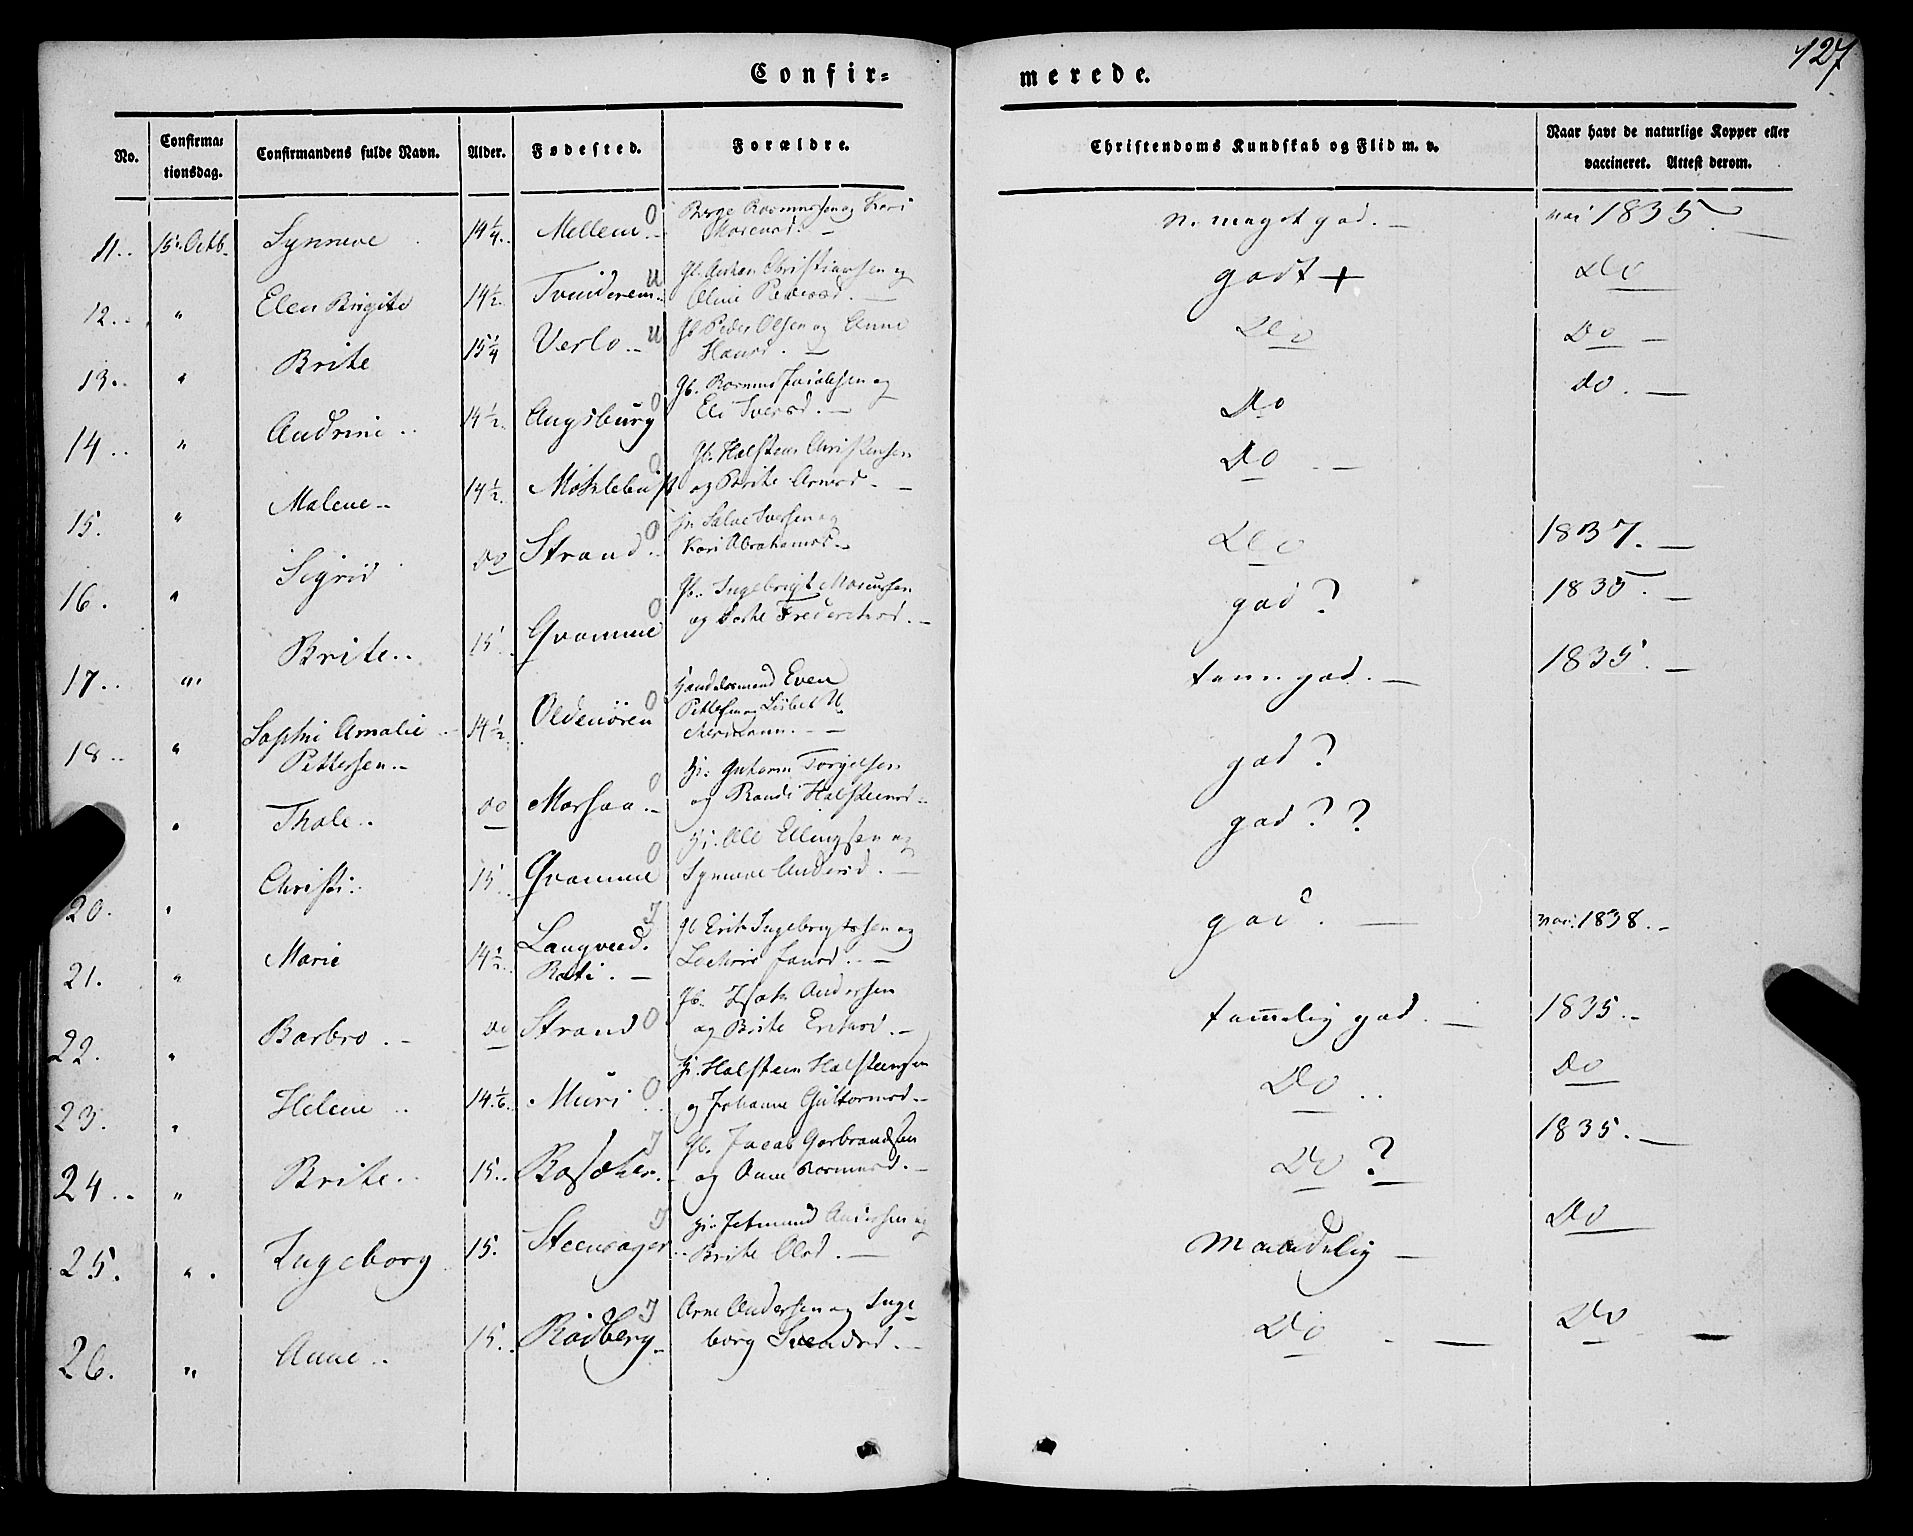 127
Confir= merede.
No. Confirma= tionsdag. Confirmandens fulde Navn. Alder. Fødested. Forældre. Christendoms Kundskab og Flid m. v. Naar havt de naturlige Kopper eller vaccineret. Attest derom.
11.. 15. Octb. Synneve 14¼.. Mellem.. O og Kari n. meget god. — 1835. —
12.. " Elen Birgite 14½. Tvinderem.. U Gb. Christiansen og Oline Pedersd. — godt + Do
13.. " Brite 15¼ Verlo.. U Gb Peder Olsen og Anne Hansd. — Do Do —
14.. " Andrine.. 14½. Augsburg O Gb. Rasmus Jacobsen og Eli Iversd. — Do do. —
15. " Malene.. 14½. Möklebust O Gb. Halsten Christensen og Brite Arnesd. — Do. —
16. " Sigrid do Strand.. O Iversen og Kari Abrahamsd.. Do 1837. —
17.. " Brite.. 15.. Qvamme O Gb. Ingebrigt og Frederiksd. — god? 1835. —
18.. " Sophi Amalie Pettersen.. 14½. Oldenören O Handelsmand Even Pettersen og Lisbet M. — temm. god. — 1835. —
" Thale.. do Morsaa.. O Torgelsen og Randi Halsteensd.. god?
20. " Christi.. 15.. Qvamme O Ole Ellingsen og Synneve Andersd. — god??
21. " Marie 14½. Langved. I Gb Erik Ingebrigtsen og god. — 1838..
22. " Barbro. — do Strand O Gb. Isak Andersen og Brite Eriksd. — temmelig god. — 1835..
23. " Helene.. 14⅙. Muri.. O Halsteen Halsteensen og Johanne Guttormsd.. Do.. Do
24.. " Brite.. 15.. I Gb. Jacob Gerbrandsen og Anne Rasmusd. — Do ? 1835. —
25. " . Ingeborg 15. Steensager.. I Andersen og Brite Olsd. — Maadelig — Do
26. " Anne.. 15.. Rödberg.. I Arne Andersen og Inge= borg Svendsd. — Do — Do —